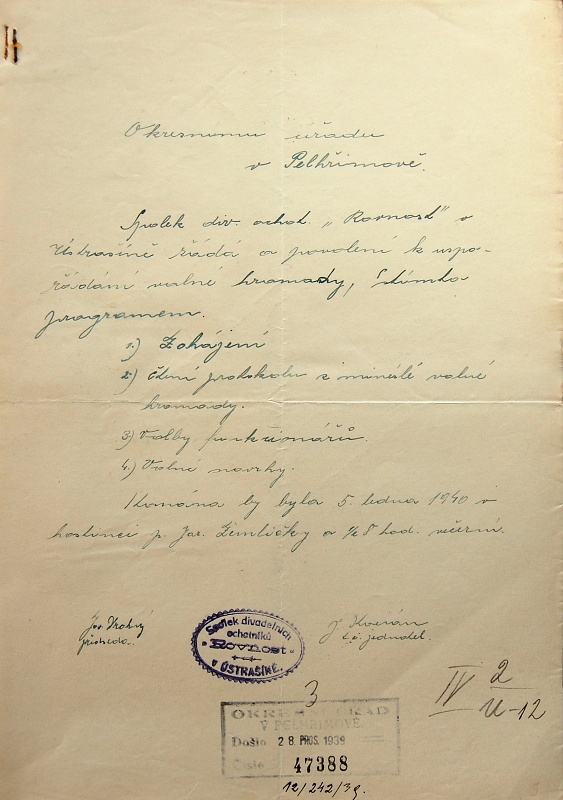 Okresnímu úřadu
v Pelhřimově.
Spolek div. ochot. „Rovnost" v
Ústrašíně žádá o povolení k uspo-
řádání valné hromady, s tímto
programem.
1.) Zahájení
2.) čtení protokolu z minulé valné
hromady.
3.) Volby funkcionářů.
4.) Volné návrhy.
Konána by byla 5. ledna 1940 v
hostinci p. Jar. Zemličky o ½ 8 hod. večerní.
předseda.
t. č. jednatel.
Spolek divadelních
ochotníků
"ROVNOST"
v ÚSTRAŠÍNĚ.
3
IV 2
U-12
OKRESNÍ ÚŘAD
V PELHŘIMOVĚ.
Došlo 28. PROS. 1939
Číslo 47388
12/242/39.